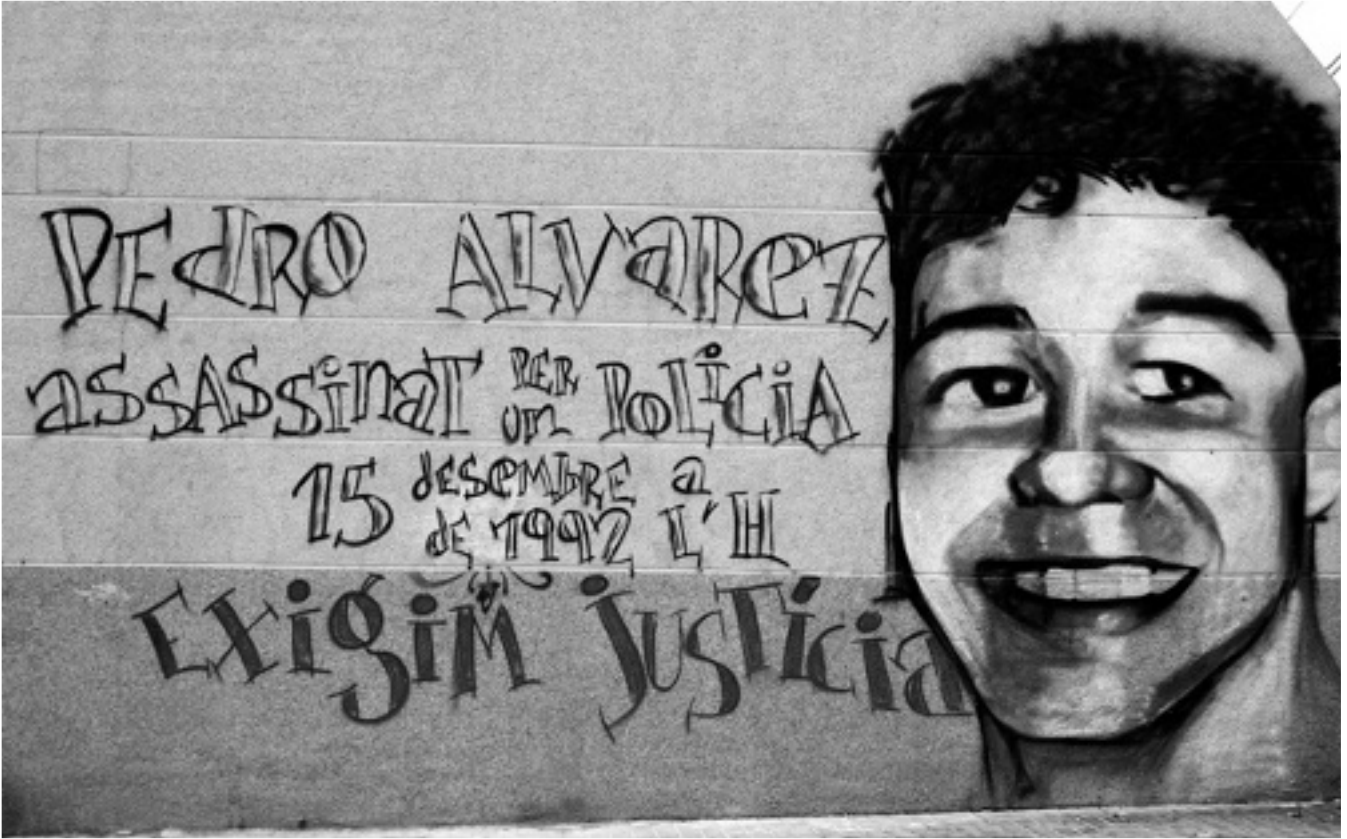 PEdRO ALVaReZ
aSSASSinaT PER un PolíciA
15 deSeMbRE de 1992 a L'H
ExigiM jusTícia